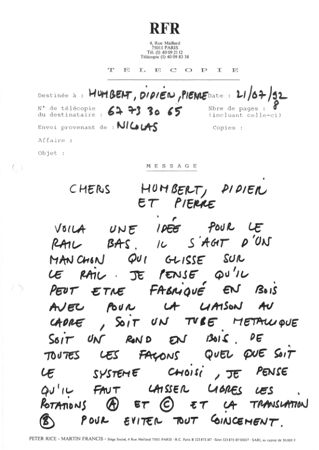 RFR
4, Rue Maillard
75011 PARIS
Tél. (1) 40 09 21 12
Télécopie (1) 40 09 82 38
TELECOPIE
Destinée à : HUMBERT, DIDIER, PIERRE Date : 21/07/92
N° de télécopie Nbre de pages : 8
du destinataire : 67 73 30 65 (incluant celle-ci)
Envoi provenant de : NICOLAS Copies :
Affaire :
Objet :
MESSAGE
CHERS HUMBERT, DIDIER
ET PIERRE
VOILA UNE IDÉE POUR LE
RAIL BAS. IL S'AGIT D'UN
MANCHON QUI GLISSE SUR
LE RAIL. JE PENSE QU'IL
PEUT ETRE FABRIQUÉ EN BOIS
AVEC POUR LA LIAISON AU
CADRE, SOIT UN TUBE METALLIQUE
SOIT UN ROND EN BOIS. DE
TOUTES LES FAÇONS QUEL QUE SOIT
LE SYSTEME CHOISI, JE PENSE
QU'IL FAUT LAISSER LIBRES LES
ROTATIONS A ET C ET LA TRANSLATION
B POUR EVITER TOUT COINCEMENT.
PETER RICE - MARTIN FRANCIS - Siège Social, 4 Rue Maillard 75011 PARIS - R.C. Paris B